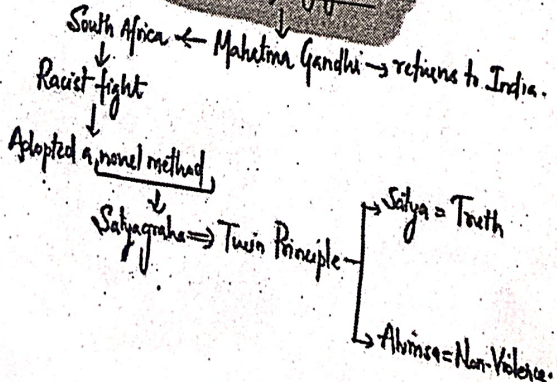 South Africa ← Mahatma Gandhi → returns to India.
↓
Racist fight
↓
Adopted a novel method
↓
Satyagraha ⇒ Twin Principle
→ Satya = Truth
→ Ahimsa = Non-Violence.